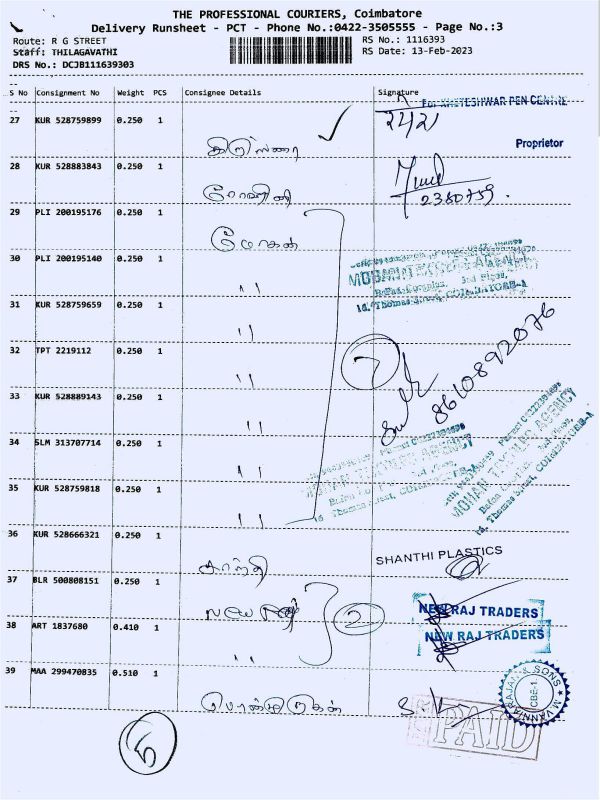 THE PROFESSIONAL COURIERS, Coimbatore
Delivery Runsheet - PCT - Phone No.:0422-3505555 - Page No.:3
Route: R G STREET
RS No.: 1116393
Staff: THILAGAVATHI
RS Date: 13-Feb-2023
DRS No.: DCJB111639303
S No Consignment No Weight PCS Consignee Details Signature
27 KUR 528759899 0.250 1
For KHETESHWAR PEN CENTRE
Proprietor
28 KUR 528883843 0.250 1
ரோஹிணி
2380759.
29 PLI 200195176 0.250 1
மோகன்
30 PLI 200195140 0.250 1 ''
MOHAN TEXCLO AGENCY
Bafna Complex, 3rd Floor,
16, Thomas Street, COIMBATORE-1
31 KUR 528759659 0.250 1 ''
32 TPT 2219112 0.250 1 ''
7
8610892076
33 KUR 528889143 0.250 1 ''
34 SLM 313707714 0.250 1 ''
MOHAN TEXCLO AGENCY
16, Thomas Street, COIMBATORE-1
MOHAN TEXCLO AGENCY
16, Thomas Street, COIMBATORE-1
35 KUR 528759818 0.250 1 ''
36 KUR 528666321 0.250 1
சாந்தி
SHANTHI PLASTICS
37 BLR 500808151 0.250 1
2
NEW RAJ TRADERS
38 ART 1837680 0.410 1 ''
NEW RAJ TRADERS
39 MAA 299470835 0.510 1
M. VANNIARAJAN & SONS
CBE-1
PAID
5